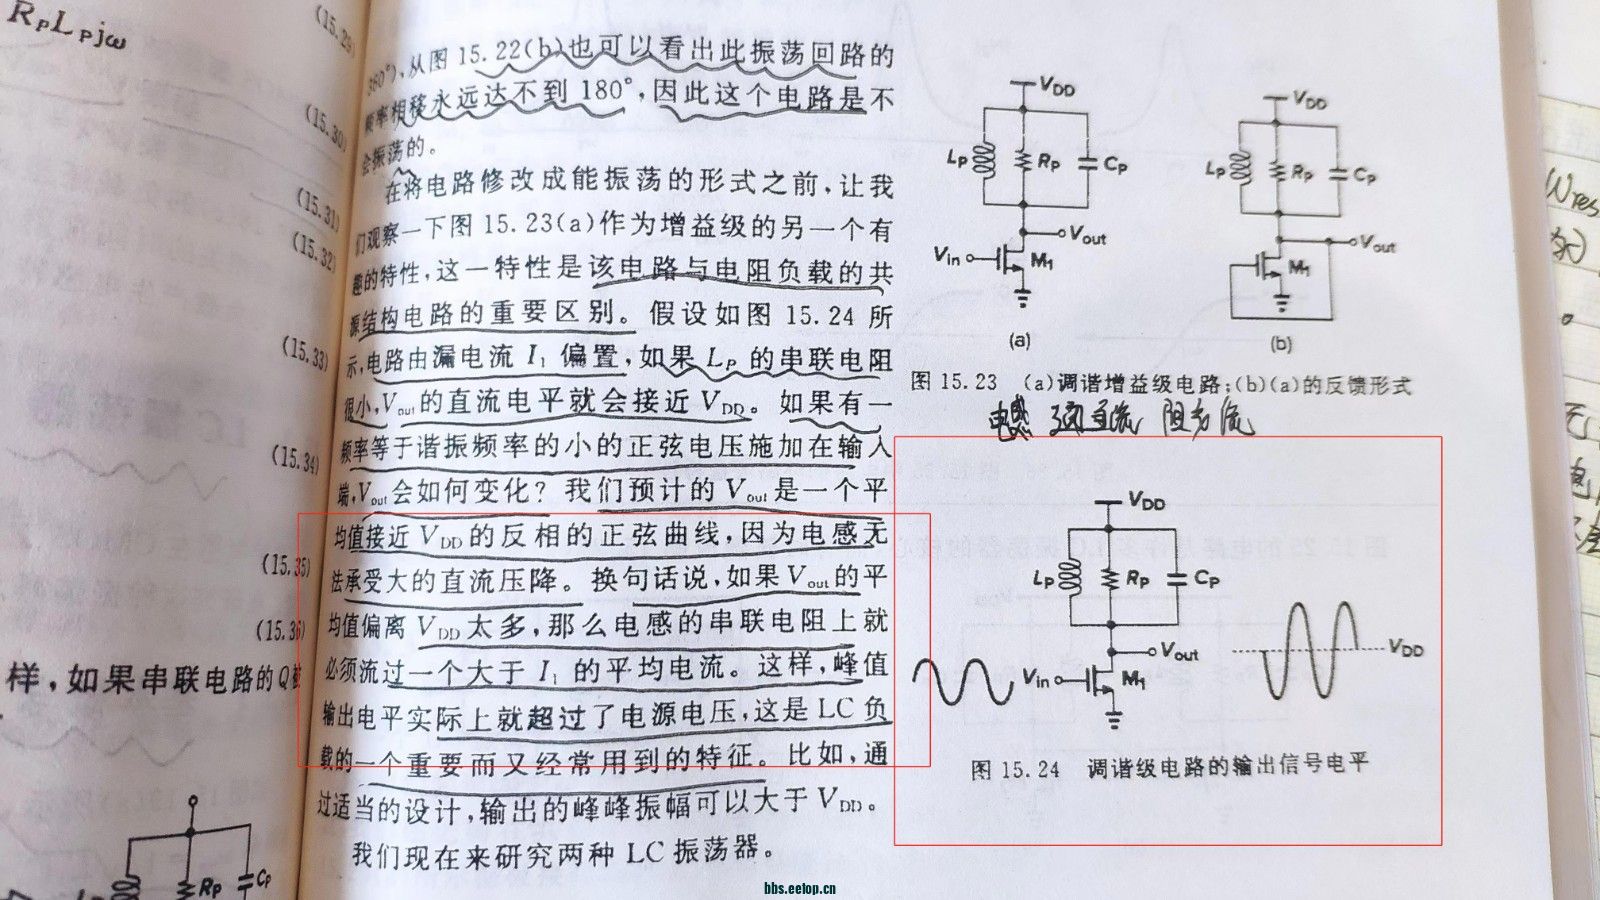 RpLpjω
(15.29)
(15.30)
(15.31)
(15.32)
(15.33)
(15.34)
(15.35)
(15.36)
样，如果串联电路的Q
Rp
Cp
360°)，从图 15.22(b)也可以看出此振荡回路的
频率相移永远达不到 180°，因此这个电路是不
会振荡的。
在将电路修改成能振荡的形式之前，让我
们观察一下图 15.23(a)作为增益级的另一个有
趣的特性，这一特性是该电路与电阻负载的共
源结构电路的重要区别。假设如图 15.24 所
示，电路由漏电流 I₁ 偏置，如果 LP 的串联电阻
很小，Vout的直流电平就会接近 VDD。如果有一
频率等于谐振频率的小的正弦电压施加在输入
端，Vout会如何变化？我们预计的 Vout是一个平
均值接近 VDD 的反相的正弦曲线，因为电感无
法承受大的直流压降。换句话说，如果 Vout的平
均值偏离 VDD 太多，那么电感的串联电阻上就
必须流过一个大于 I₁ 的平均电流。这样，峰值
输出电平实际上就超过了电源电压，这是 LC 负
载的一个重要而又经常用到的特征。比如，通
过适当的设计，输出的峰峰振幅可以大于 VDD。
我们现在来研究两种 LC 振荡器。
VDD
Lp
Rp
Cp
Vout
Vin
M1
(a)
VDD
Lp
Rp
Cp
Vout
M1
(b)
图 15.23 (a)调谐增益级电路；(b)(a)的反馈形式
电感 通直流 阻交流
VDD
Lp
Rp
Cp
Vout
Vin
M1
VDD
图 15.24 调谐级电路的输出信号电平
Wres
bbs.eetop.cn